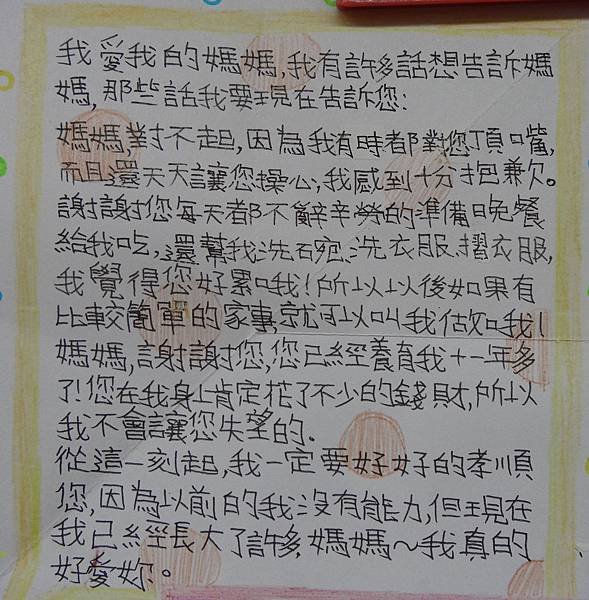 我愛我的媽媽,我有許多話想告訴媽
媽,那些話我要現在告訴您:
媽媽,對不起,因為我有時都對您頂嘴,
而且還天天讓您操心,我感到十分抱兼欠。
謝謝您每天都不辭辛勞的準備晚餐
給我吃,還幫我洗碗、洗衣服、摺衣服,
我覺得您好累哦!所以以後如果有
比較簡單的家事,就可以叫我做哦!
媽媽,謝謝您,您已經養育我十一年多
了!您在我身上肯定花了不少的錢財,所以
我不會讓您失望的。
從這一刻起,我一定要好好的孝順
您,因為以前的我沒有能力,但現在
我已經長大了許多,媽媽～我真的
好愛妳。